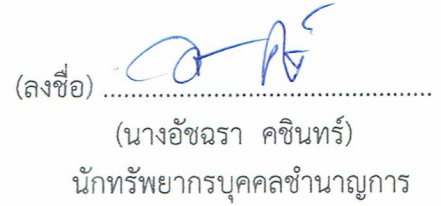 (ลงชื่อ) ........................................................
(นางอัชฉรา คชินทร์)
นักทรัพยากรบุคคลชำนาญการ